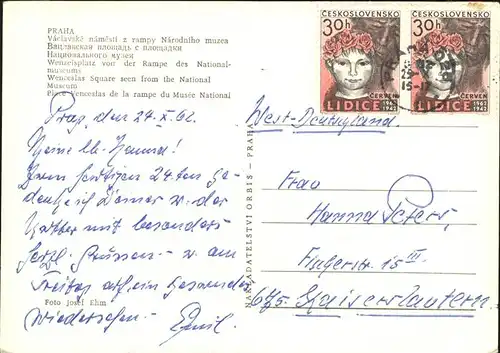 PRAHA
Václavské náměstí z rampy Národního muzea
Вацлавская площадь с площадки
Национального музея
Wenzelsplatz von der Rampe des National-
museums
Wenceslas Square seen from the National
Museum
Place Venceslas de la rampe du Musée National
Prag, den 24. X. 62.
Meine lb. Hanna!
Zum heutigen 24ten ge-
denke ich Deiner u. der
Mutter mit besonders
herzl. Grüssen. - u. am
Freitag auf ein gesundes
Wiedersehen. - Emil.
Foto Josef Ehm
NAKLADATELSTVÍ ORBIS - PRAHA
ČESKOSLOVENSKO
30h
ČERVEN
LIDICE 1962
1942
ČESKOSLOVENSKO
30h
ČERVEN
LIDICE 1962
1942
West-Deutschland.
Frau
Hanna Peters,
15 III
675 Kaiserslautern.